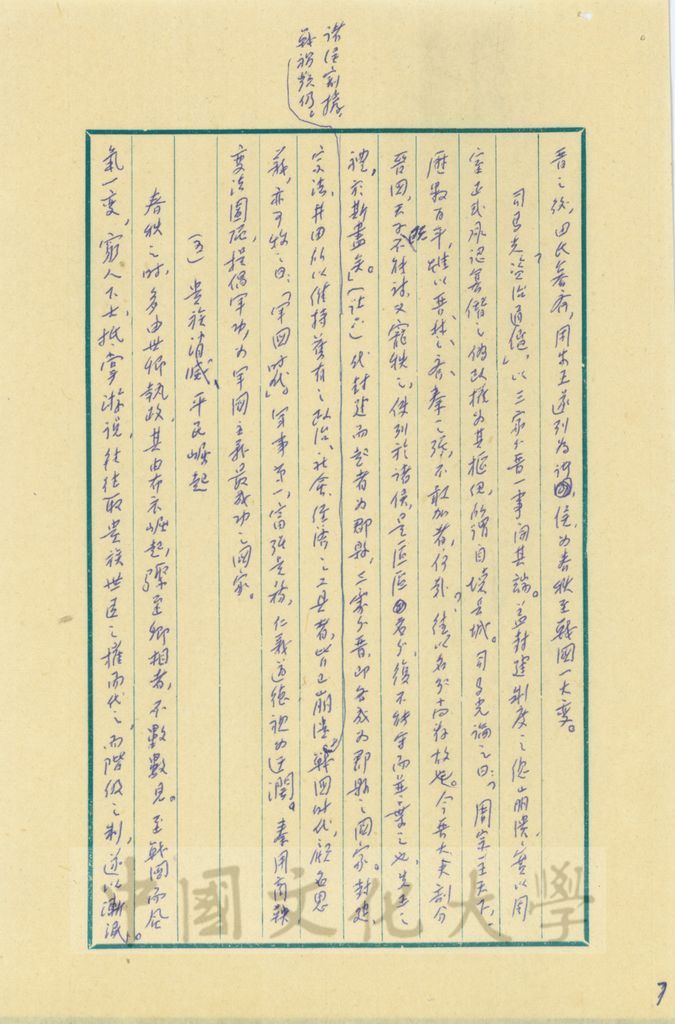 晋之後，田氏篡齊，周安王遂列為諸國，俓為春秋至戰國一大變。
司馬光資治通鑑，以三家分晋一事開其端。蓋封建制度之總崩潰，實以周
室正式承認篡僭之偽政權為其樞紐，所謂自壞長城。司馬光論之曰：「周宗主天下，
歷數百年，雖以晋、楚、齊、秦之强，不敢加者，何哉？徒以名分尚存故也。今晋大夫剖分
晋國，天子既不能討，又寵秩之，使列於諸侯，是區區名分，復不能守而並棄之也，先王之
禮，於斯盡矣。」代封建而起者為郡縣，三家分晋，即各成為郡縣之國家。封建
宗法、井田所以維持舊有之政治、社會、經濟之工具者，皆已崩潰
諸侯割據，
戰禍頻仍。
戰國時代，顧名思
義，亦可效之曰：「軍國時代」，軍事第一，富强是務，仁義道德視為迂濶。秦用商鞅
變法圖强，提倡軍功，為軍國主義最成功之國家。
（五）貴族消滅、平民崛起
春秋之時，多由世卿執政，其由布衣崛起，驟至卿相者，不數數見。至戰國而風
氣一變，窮人下士，抵掌游說，往往取貴族世臣之權而代之，而階級之制，遂以漸泯。
7
中國文化大學